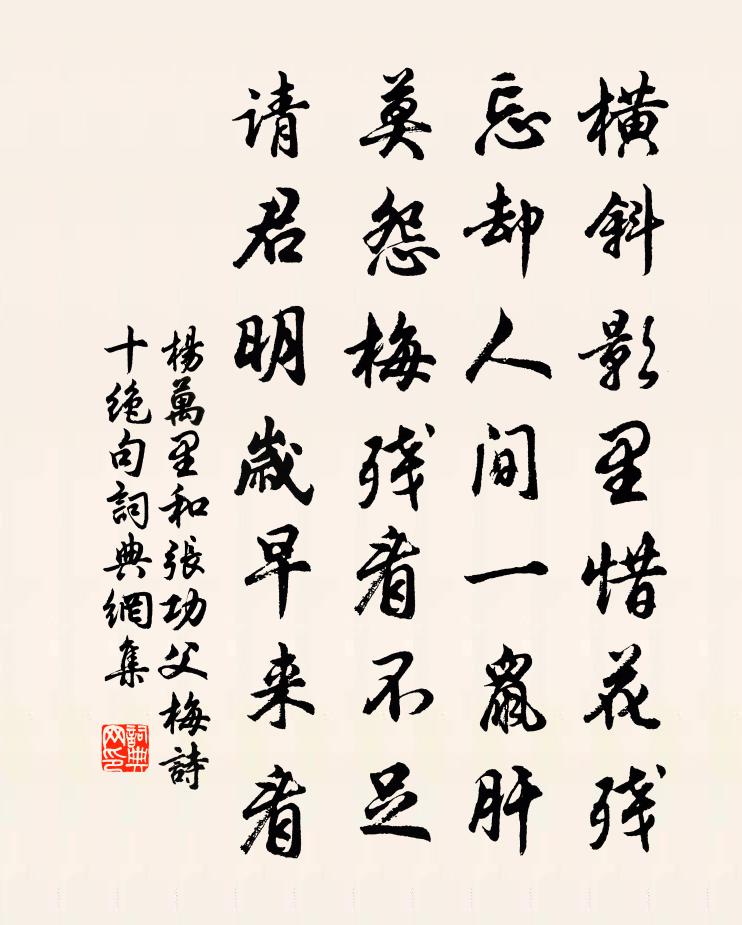 横斜影里惜花残
忘却人间一鼠肝
莫怨梅残看不足
请君明岁早来看
楊萬里和張功父梅詩
十绝句詞典網集
詞典
网印